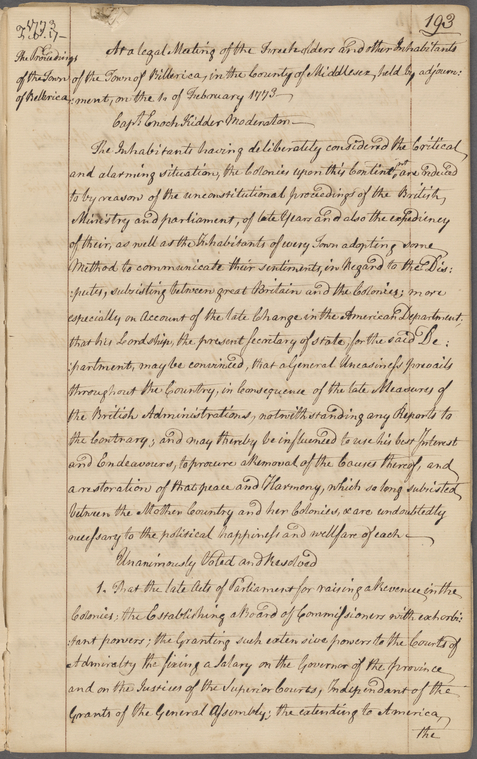 193
1773
The Proceedings
of the Town
of Bellerica
At a legal Meeting of the Freeholders and other Inhabitants
of the Town of Billerica, in the County of Middlesex, held by adjourn:
:ment, on the 1. of February 1773 —
Capt Enoch Kidder Moderator —
The Inhabitants having deliberately considered the Critical
and alarming situation, the Colonies upon this Continent, are reduced
to by reason of the unconstitutional proceedings of the British
Ministry and parliament, of late Years and also the expediency
of their, as well as the Inhabitants of every Town adopting some
Method to communicate their sentiments, in Regard to the Dis:
:putes, subsisting between great Britain and the Colonies; more
especially on Account of the late Change in the American Department,
that his Lordship, the present secretary of state, for the said De:
:partment, may be convinced, that a General Uneasiness prevails
throughout the Country, in Consequence of the late Measures of
the British Administrations, notwithstanding any Reports to
the Contrary; and may thereby be influenced to use his best Interest
and Endeavours, to procure a Removal of the Causes thereof, and
a restoration of that peace and Harmony, which so long subsisted
between the Mother Country and her Colonies, & are undoubtedly
necessary to the political happiness and wellfare of each —
Unanimously Voted and Resolved
1. That the late Acts of Parliament for raising a Revenue in the
Colonies; the Establishing a Board of Commissioners with exhorbi:
:tant powers; the Granting such extensive powers to the Courts of
Admiralty the fixing a Salary on the Governor of the province
and on the Justices of the Superior Courts, Independant of the
Grants of the General Assembly; the extending to America,
the